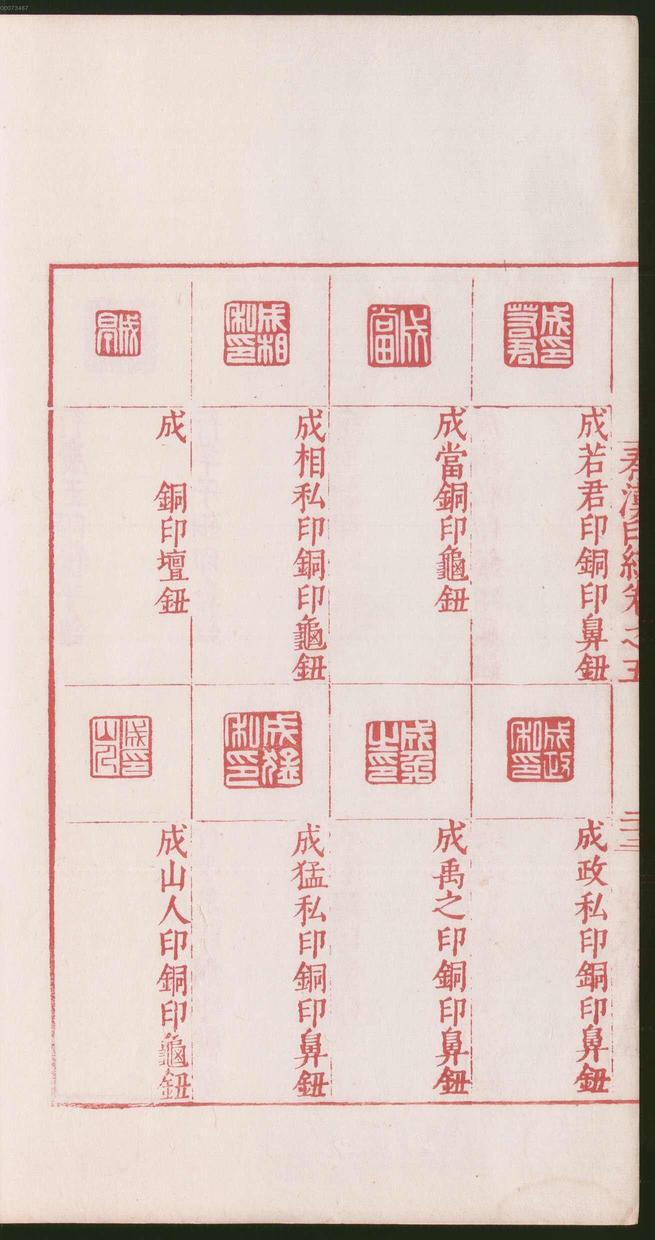 00073467
秦漢印統卷之五
成若君印銅印鼻鈕
成當銅印龜鈕
成相私印銅印龜鈕
成 銅印壇鈕
成政私印銅印鼻鈕
成禹之印銅印鼻鈕
成猛私印銅印鼻鈕
成山人印銅印龜鈕